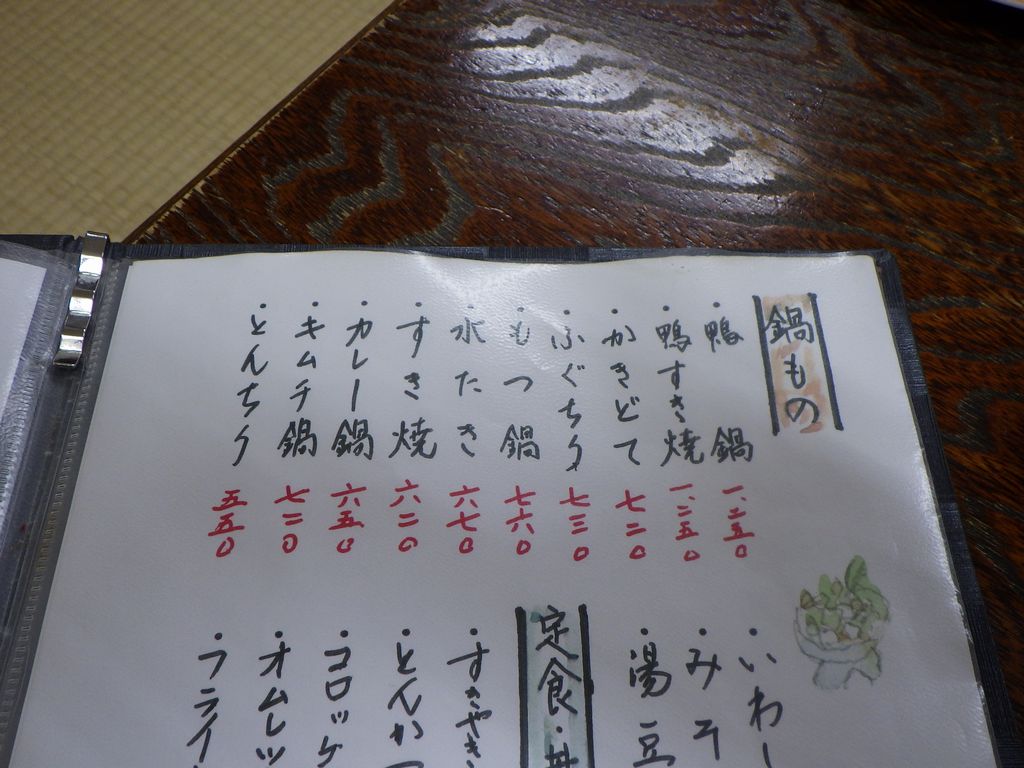 鍋もの
・鴨鍋 一、二五〇
・鴨すき焼 一、二五〇
・かきどて 七二〇
・ふぐちり 七三〇
・もつ鍋 七六〇
・水たき 六七〇
・すき焼 六二〇
・カレー鍋 六五〇
・キムチ鍋 七二〇
・とんちり 五五〇
・いわし
・みそ
・湯豆
定食・丼
・すきやき
・とんかつ
・コロッケ
・オムレツ
・フライ